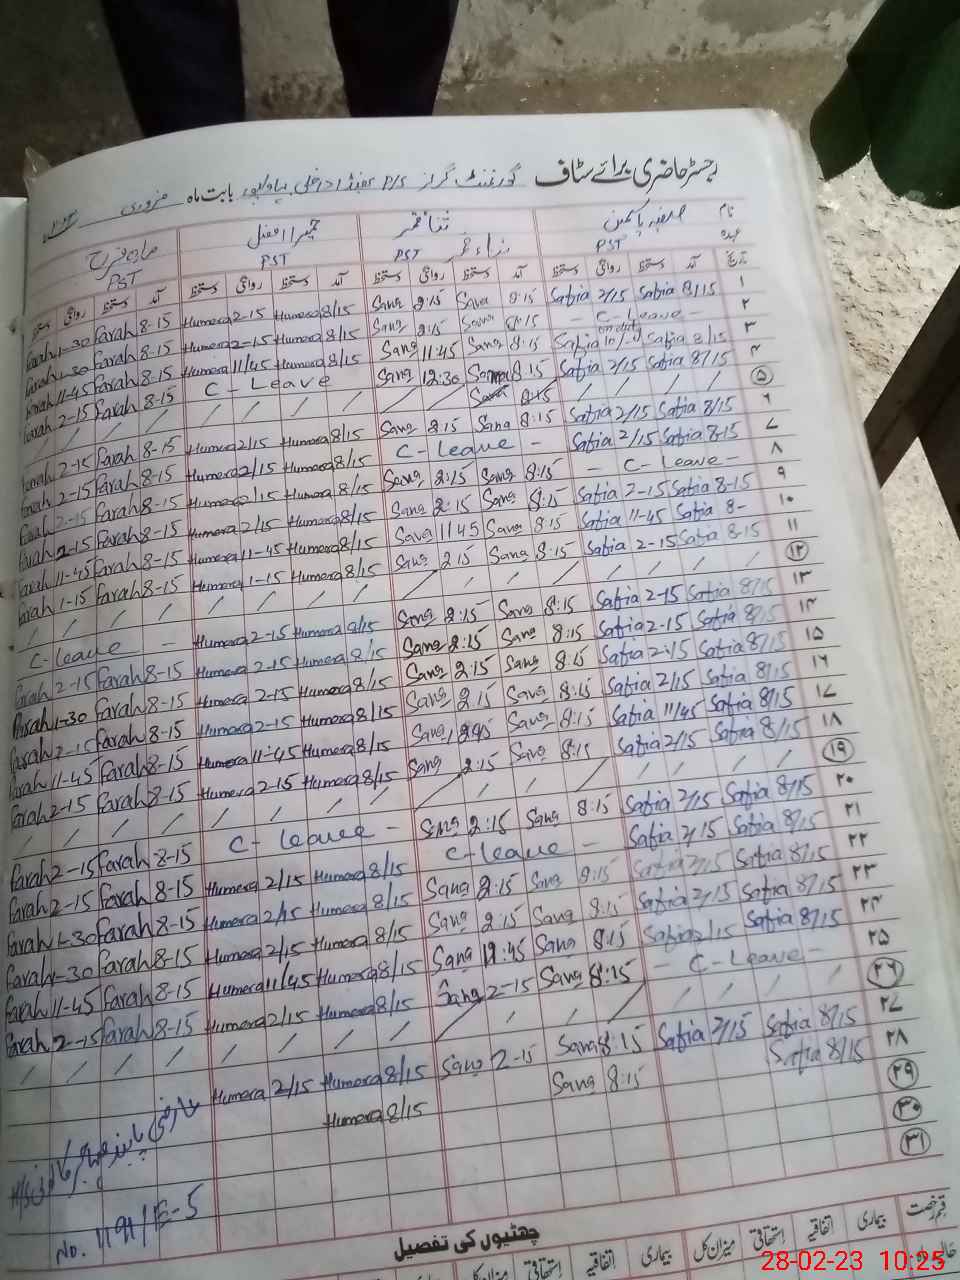 رجسٹر حاضری برائے سٹاف گورنمنٹ گرلز P/S بابت ماہ فروری ۲۳
نام صفیہ یاسمین ثناء قمر حمیرا افضل ماہ فرح
عہدہ PST PST PST PST
تاریخ آمد دستخط روانگی دستخط آمد دستخط روانگی دستخط آمد دستخط روانگی دستخط آمد دستخط روانگی دستخط
Farah 1-30 Farah 8-15 Humera 2-15 Humera 8/15 Sana 2:15 Sana 8:15 Safia 2/15 Safia 8/15 ۱
Farah 1-30 Farah 8-15 Humera 2-15 Humera 8/15 Sana 2:15 Sana 8:15 - C-Leave - ۲
Farah 11-45 Farah 8-15 Humera 11/45 Humera 8/15 Sana 11:45 Sana 8:15 Safia on duty Safia 8/15 ۳
Farah 2-15 Farah 8-15 C-Leave Sana 12:30 Sana 8:15 Safia 2/15 Safia 8/15 ۴
/ / / / / / / / / / Sana 8:15 / / / / ۵
Farah 2-15 Farah 8-15 Humera 2/15 Humera 8/15 Sana 2 15 Sana 8:15 Safia 2/15 Safia 8/15 ۶
Farah 2-15 Farah 8-15 Humera 2/15 Humera 8/15 C-Leave - Safia 2/15 Safia 8-15 ۷
Farah 2-15 Farah 8-15 Humera 2/15 Humera 8/15 Sana 2:15 Sana 8:15 - C-Leave - ۸
Farah 2-15 Farah 8-15 Humera 2/15 Humera 8/15 Sana 2:15 Sana 8:15 Safia 2-15 Safia 8-15 ۹
Farah 11-45 Farah 8-15 Humera 11-45 Humera 8/15 Sana 11 45 Sana 8:15 Safia 11-45 Safia 8- ۱۰
Farah 1-15 Farah 8-15 Humera 1-15 Humera 8/15 Sana 2 15 Sana 8:15 Safia 2-15 Safia 8-15 ۱۱
/ / / / / / / / / / / / / / / / ۱۲
C-Leave - Humera 2-15 Humera 8/15 Sana 2:15 Sana 8:15 Safia 2-15 Safia 8/15 ۱۳
Farah 2-15 Farah 8-15 Humera 2-15 Humera 8/15 Sana 2:15 Sana 8:15 Safia 2-15 Safia 8/15 ۱۴
Farah 1-30 Farah 8-15 Humera 2-15 Humera 8/15 Sana 2:15 Sana 8:15 Safia 2-15 Safia 8/15 ۱۵
Farah 2-15 Farah 8-15 Humera 2-15 Humera 8/15 Sana 2 15 Sana 8:15 Safia 2/15 Safia 8/15 ۱۶
Farah 11-45 Farah 8-15 Humera 11:45 Humera 8/15 Sana Sana 8:15 Safia 11/45 Safia 8/15 ۱۷
Farah 2-15 Farah 8-15 Humera 2-15 Humera 8/15 Sana 2:15 Sana 8:15 Safia 2/15 Safia 8/15 ۱۸
/ / / / / / / / / / / / / / / / ۱۹
Farah 2-15 Farah 8-15 C-Leave - Sana 2:15 Sana 8:15 Safia 2/15 Safia 8/15 ۲۰
Farah 2-15 Farah 8-15 Humera 2/15 Humera 8/15 C-Leave - Safia 2/15 Safia 8/15 ۲۱
Farah 1-30 Farah 8-15 Humera 2/15 Humera 8/15 Sana 2:15 Sana 8:15 Safia 2/15 Safia 8/15 ۲۲
Farah 1-30 Farah 8-15 Humera 2/15 Humera 8/15 Sana 2:15 Sana 8:15 Safia 2/15 Safia 8/15 ۲۳
Farah 11-45 Farah 8-15 Humera 11/45 Humera 8/15 Sana Sana 8:15 Safia 2/15 Safia 8/15 ۲۴
Farah 2-15 Farah 8-15 Humera 2/15 Humera 8/15 Sana 2-15 Sana 8:15 - C-Leave - ۲۵
/ / / / / / / / / / / / / / / / ۲۶
Humera 2/15 Humera 8/15 Sana 2-15 Sana 8:15 Safia 2/15 Safia 8/15 ۲۷
Humera 8/15 Sana 8:15 Safia 8/15 ۲۸
۲۹
۳۰
۳۱
No. 1191/E-5
چھٹیوں کی تفصیل
قسم رخصت بیماری اتفاقیہ استحقاقی میزان کل بیماری اتفاقیہ استحقاقی میزان کل
28-02-23 10:25